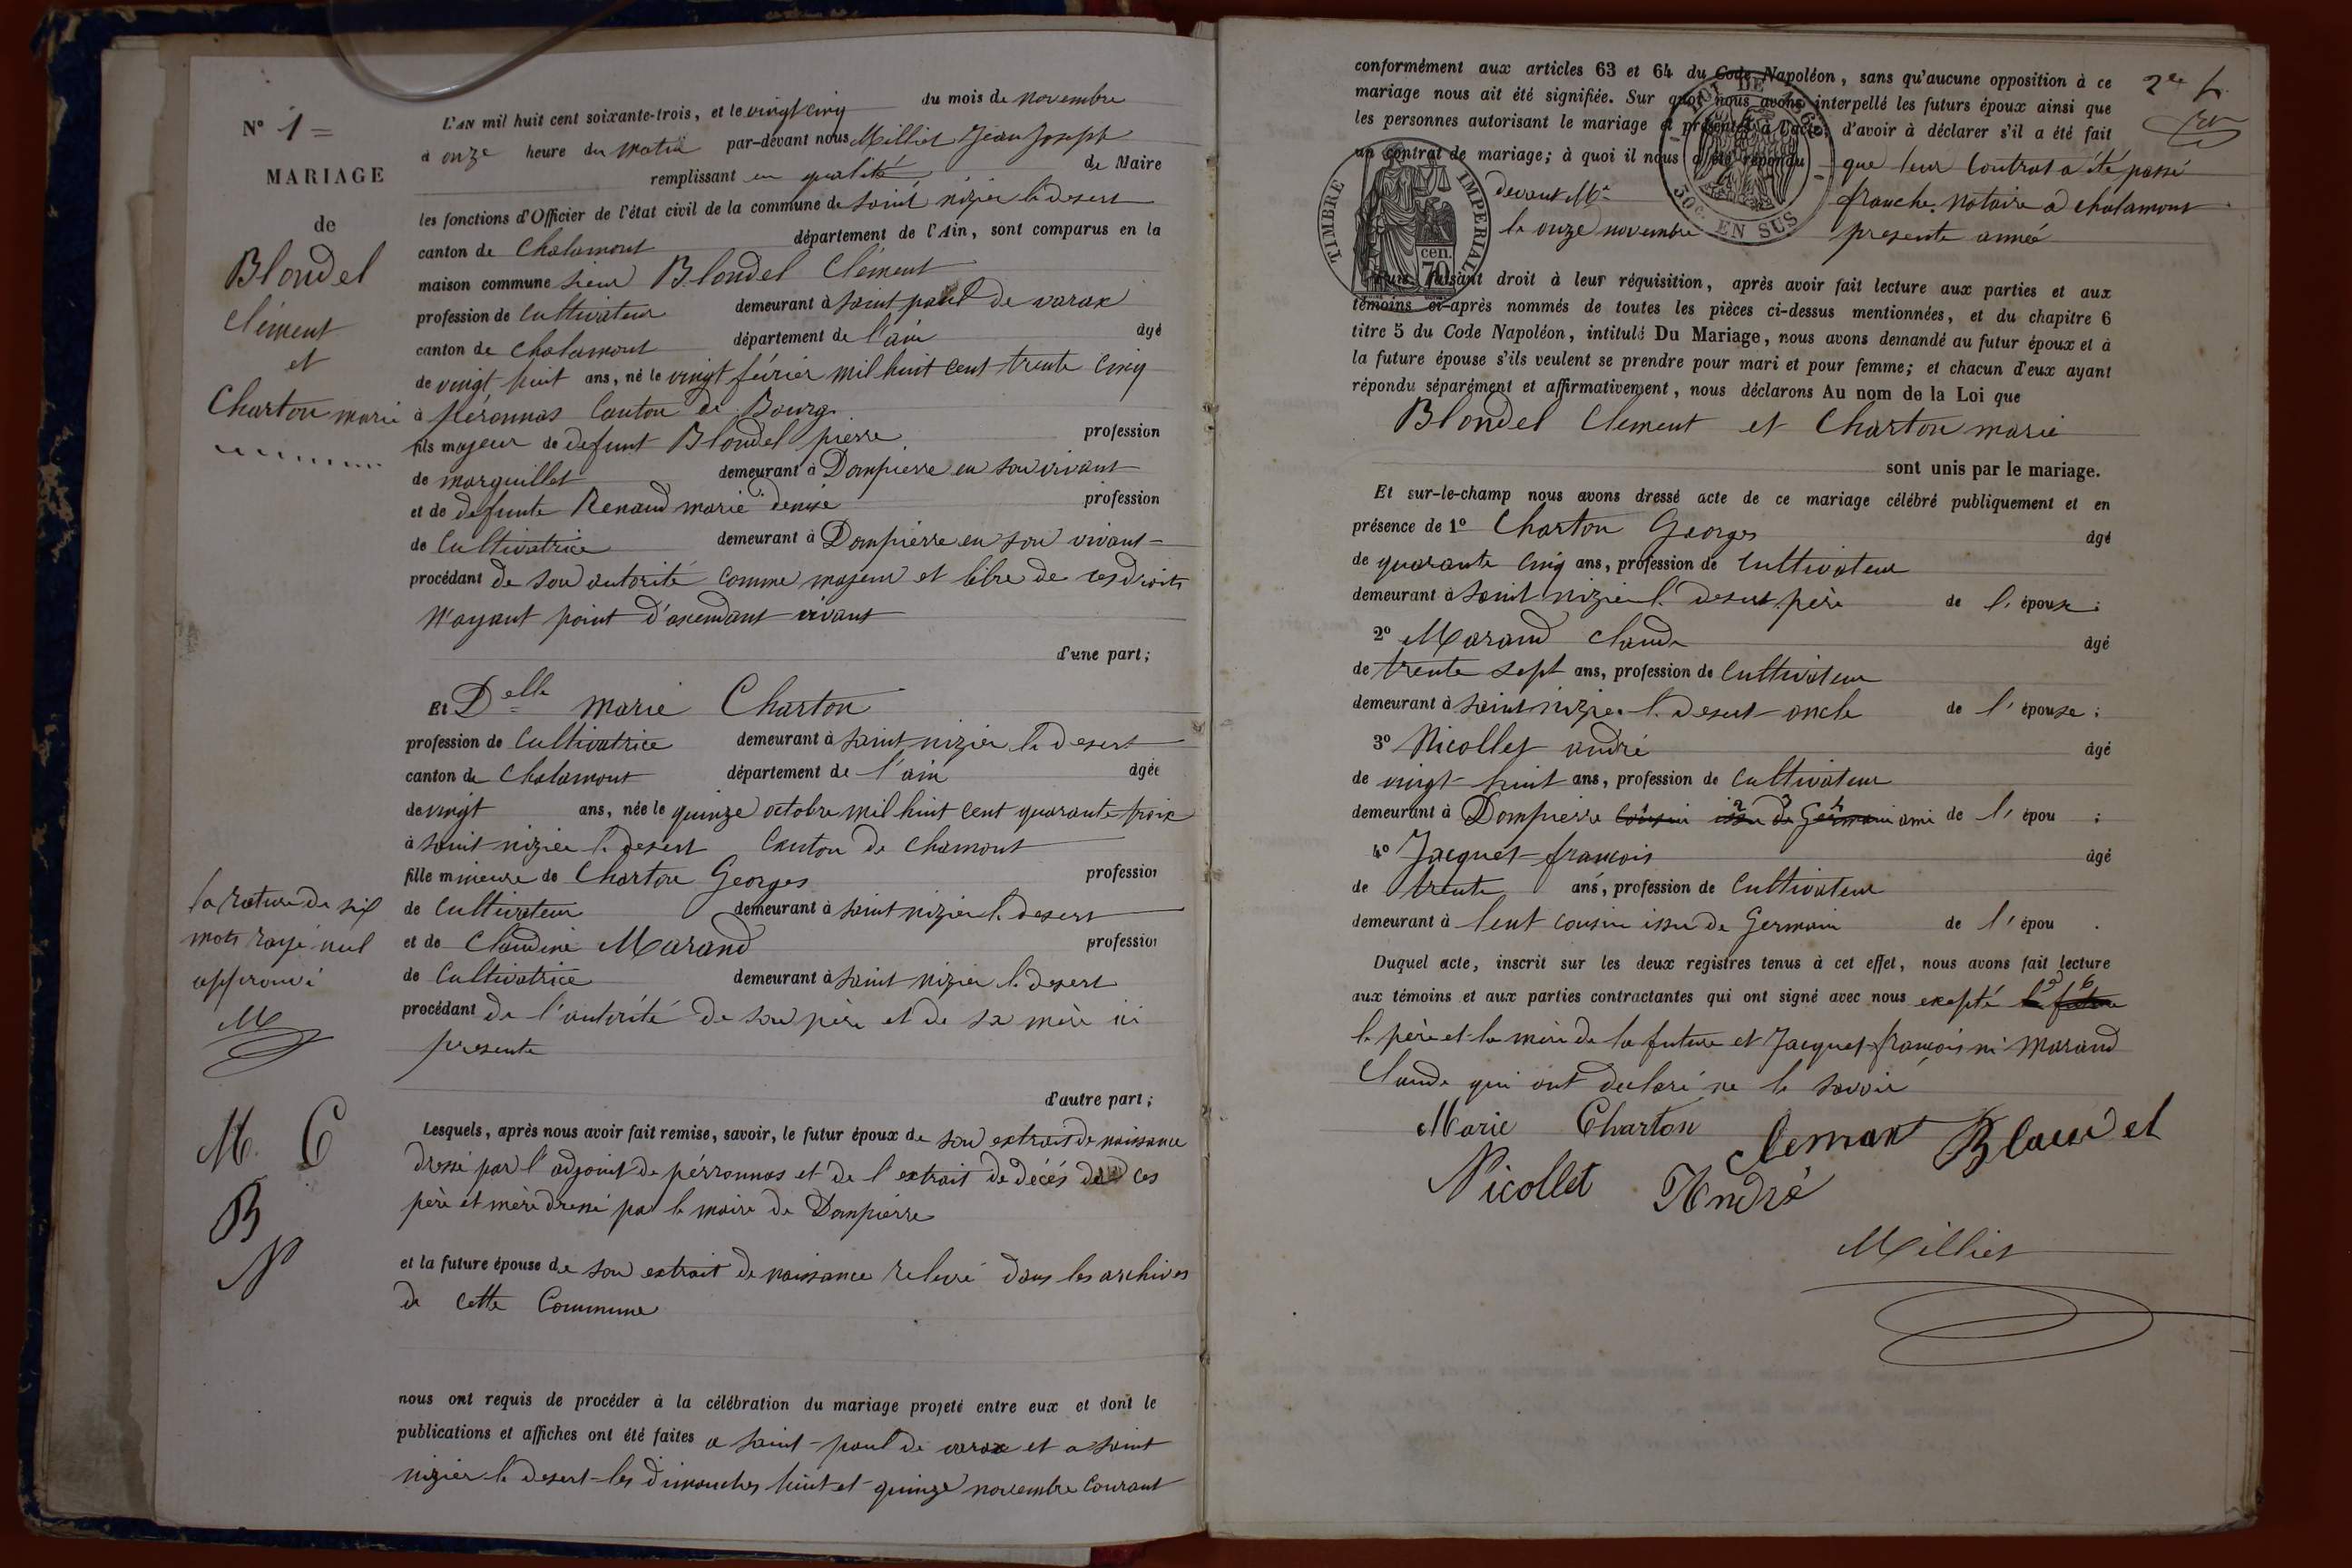 N° 1 =
MARIAGE
de
Blondel
Clément
et
Charton marie
L'AN mil huit cent soixante-trois, et le vingt cinq du mois de novembre
à onze heure du matin par-devant nous Milliet Jean Joseph
remplissant en qualité de Maire
les fonctions d'Officier de l'état civil de la commune de saint nizier le desert
canton de Chalamont département de l'Ain, sont comparus en la
maison commune sieur Blondel Clément
profession de Cultivateur demeurant à saint paul de varax
canton de Chalamont département de l'ain âgé
de vingt huit ans, né le vingt février mil huit cent trente cinq
à péronnas Canton de Bourg
fils majeur de defunt Blondel pierre profession
de marguillet demeurant à Dompierre en son vivant
et de defunte Renaud marie denise profession
de Cultivatrice demeurant à Dompierre en son vivant
procédant de son autorité comme majeur et libre de ses droits
n'ayant point d'asendant vivant
d'une part;
Et Delle marie Charton
profession de Cultivatrice demeurant à saint nizier le desert
canton de Chalamont département de l'ain âgée
de vingt ans, née le quinze octobre mil huit cent quarante trois
à saint nizier le desert Canton de Chamont
fille mineure de Charton Georges profession
de Cultivateur demeurant à saint nizier le desert
et de Claudine Marand profession
de Cultivatrice demeurant à saint nizier le desert
procédant de l'autorité de son père et de sa mère ici
presente
d'autre part;
la rature de six
mots rayé nul
approuvé
M
M. C
B
N
Lesquels, après nous avoir fait remise, savoir, le futur époux de son extrait de naissance
dressé par l'adjoint de pérronnas et de l'extrait de décés de ces
père et mère dressé par le maire de Dompierre
et la future épouse de son extrait de naissance relevé dans les archives
de cette Commune
nous ont requis de procéder à la célébration du mariage projeté entre eux et dont le
publications et affiches ont été faites a saint paul de varax et a saint
nizier le desert les dimanches huit et quinze novembre Courant
2e f.
conformément aux articles 63 et 64 du Code Napoléon, sans qu'aucune opposition à ce
mariage nous ait été signifiée. Sur quoi nous avons interpellé les futurs époux ainsi que
les personnes autorisant le mariage et présentes à l'acte, d'avoir à déclarer s'il a été fait
un contrat de mariage; à quoi il nous a été répondu que leur Contrat a été passé
devant Me franche. Notaire a chalamont
le onze novembre presente année
TIMBRE IMPERIAL
cen. 70
EN SUS
Puis, faisant droit à leur réquisition, après avoir fait lecture aux parties et aux
témoins ci-après nommés de toutes les pièces ci-dessus mentionnées, et du chapitre 6
titre 5 du Code Napoléon, intitulé Du Mariage, nous avons demandé au futur époux et à
la future épouse s'ils veulent se prendre pour mari et pour femme; et chacun d'eux ayant
répondu séparément et affirmativement, nous déclarons Au nom de la Loi que
Blondel Clement et Charton marie
sont unis par le mariage.
Et sur-le-champ nous avons dressé acte de ce mariage célébré publiquement et en
présence de 1° Charton Georges âgé
de quarante cinq ans, profession de Cultivateur
demeurant à saint nizier le desert père de l'épouse;
2° Marand Claude âgé
de trente sept ans, profession de Cultivateur
demeurant à saint nizier le desert oncle de l'épouse;
3° Nicollet andré âgé
de vingt huit ans, profession de Cultivateur
demeurant à Dompierre Cousin issu de Germain ami de l'épou ;
4° Jacquet françois âgé
de trente ans, profession de Cultivateur
demeurant à lent cousin issu de Germain de l'épou .
Duquel acte, inscrit sur les deux registres tenus à cet effet, nous avons fait lecture
aux témoins et aux parties contractantes qui ont signé avec nous exepté la future
le père et la mère de la future et Jacquet françois ni Marand
Claude qui ont declaré ne le savoir
Marie Charton Clemant Blondel
Nicollet André
Milliet